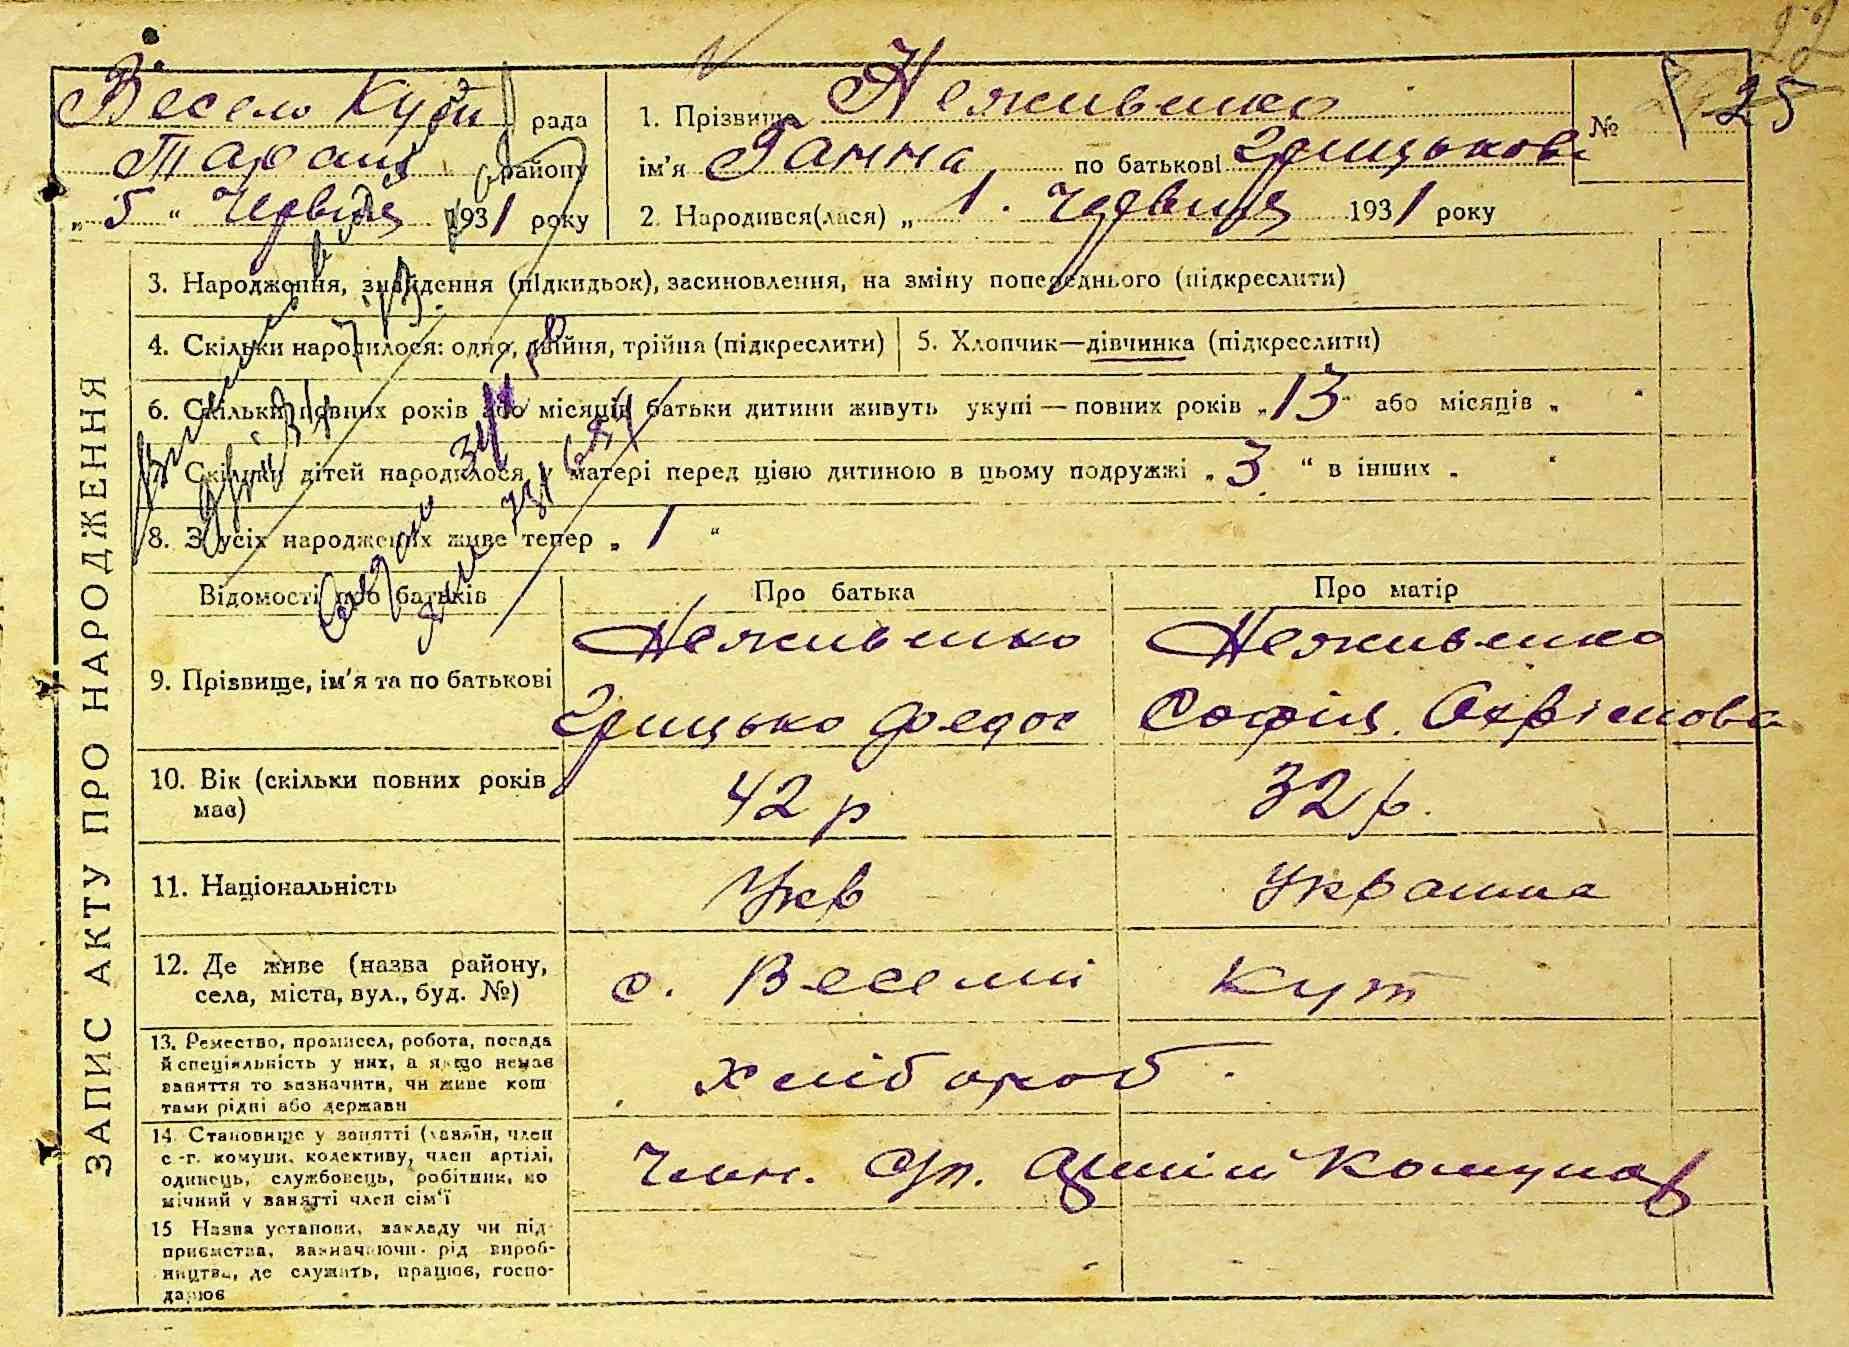 Весело Кут рада
Таращ району
„ 5 “ Червця 1931 року
1. Прізвище Неживенко
ім'я Ганна по батькові Грицькова
2. Народився(лася) „ 1. Червця 1931 року
№ 25
22
ЗАПИС АКТУ ПРО НАРОДЖЕННЯ
3. Народження, знайдення (підкидьок), засиновлення, на зміну попереднього (підкреслити)
4. Скільки народилося: одно, двійня, трійня (підкреслити)
5. Хлопчик—дівчинка (підкреслити)
6. Скільки повних років або місяців батьки дитини живуть укупі — повних років „ 13 “ або місяців „ “
7. Скільки дітей народилося у матері перед цією дитиною в цьому подружжі „ 3 “ в інших „ “
8. З усіх народжених живе тепер „ 1 “
Відомості про батьків
Про батька
Про матір
9. Прізвище, ім'я та по батькові
Неживенко
Грицько Федос
Неживенко
Софія Охрімова
10. Вік (скільки повних років має)
42 р
32 р.
11. Національність
Укр
Українка
12. Де живе (назва району,
села, міста, вул., буд. №)
с. Веселий Кут
13. Ремество, промисел, робота, посада
й спеціяльність у них, а якщо немає
заняття то зазначити, чи живе кош
тами рідні або держави
Хлібороб
14. Становище у занятті (хазяїн, член
с.-г. комуни, колективу, член артілі,
одинець, службовець, робітник, по
мічний у занятті член сім'ї
Член. Артілі Комунар
15 Назва установи, закладу чи під
приємства, зазначаючи рід вироб-
ництва, де служить, працює, госпо-
дарює